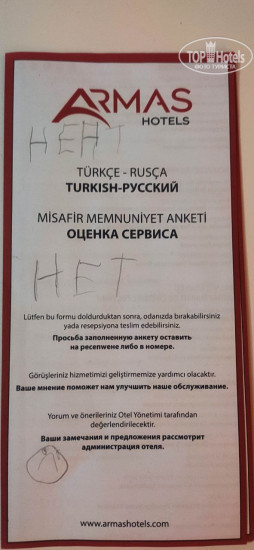 TOPHotels
ФОТО ТУРИСТА
ARMAS
HOTELS
НЕНТ
TÜRKÇE - RUSÇA
TURKISH-РУССКИЙ
MİSAFİR MEMNUNİYET ANKETİ
ОЦЕНКА СЕРВИСА
НЕТ
Lütfen bu formu doldurduktan sonra, odanızda bırakabilirsiniz
yada resepsiyona teslim edebilirsiniz.
Просьба заполненную анкету оставить
на ресепшене либо в номере.
Görüşleriniz hizmetimizi geliştirmemize yardımcı olacaktır.
Ваше мнение поможет нам улучшить наше обслуживание.
Yorum ve önerileriniz Otel Yönetimi tarafından
değerlendirilecektir.
Ваши замечания и предложения рассмотрит
администрация отеля.
www.armashotels.com